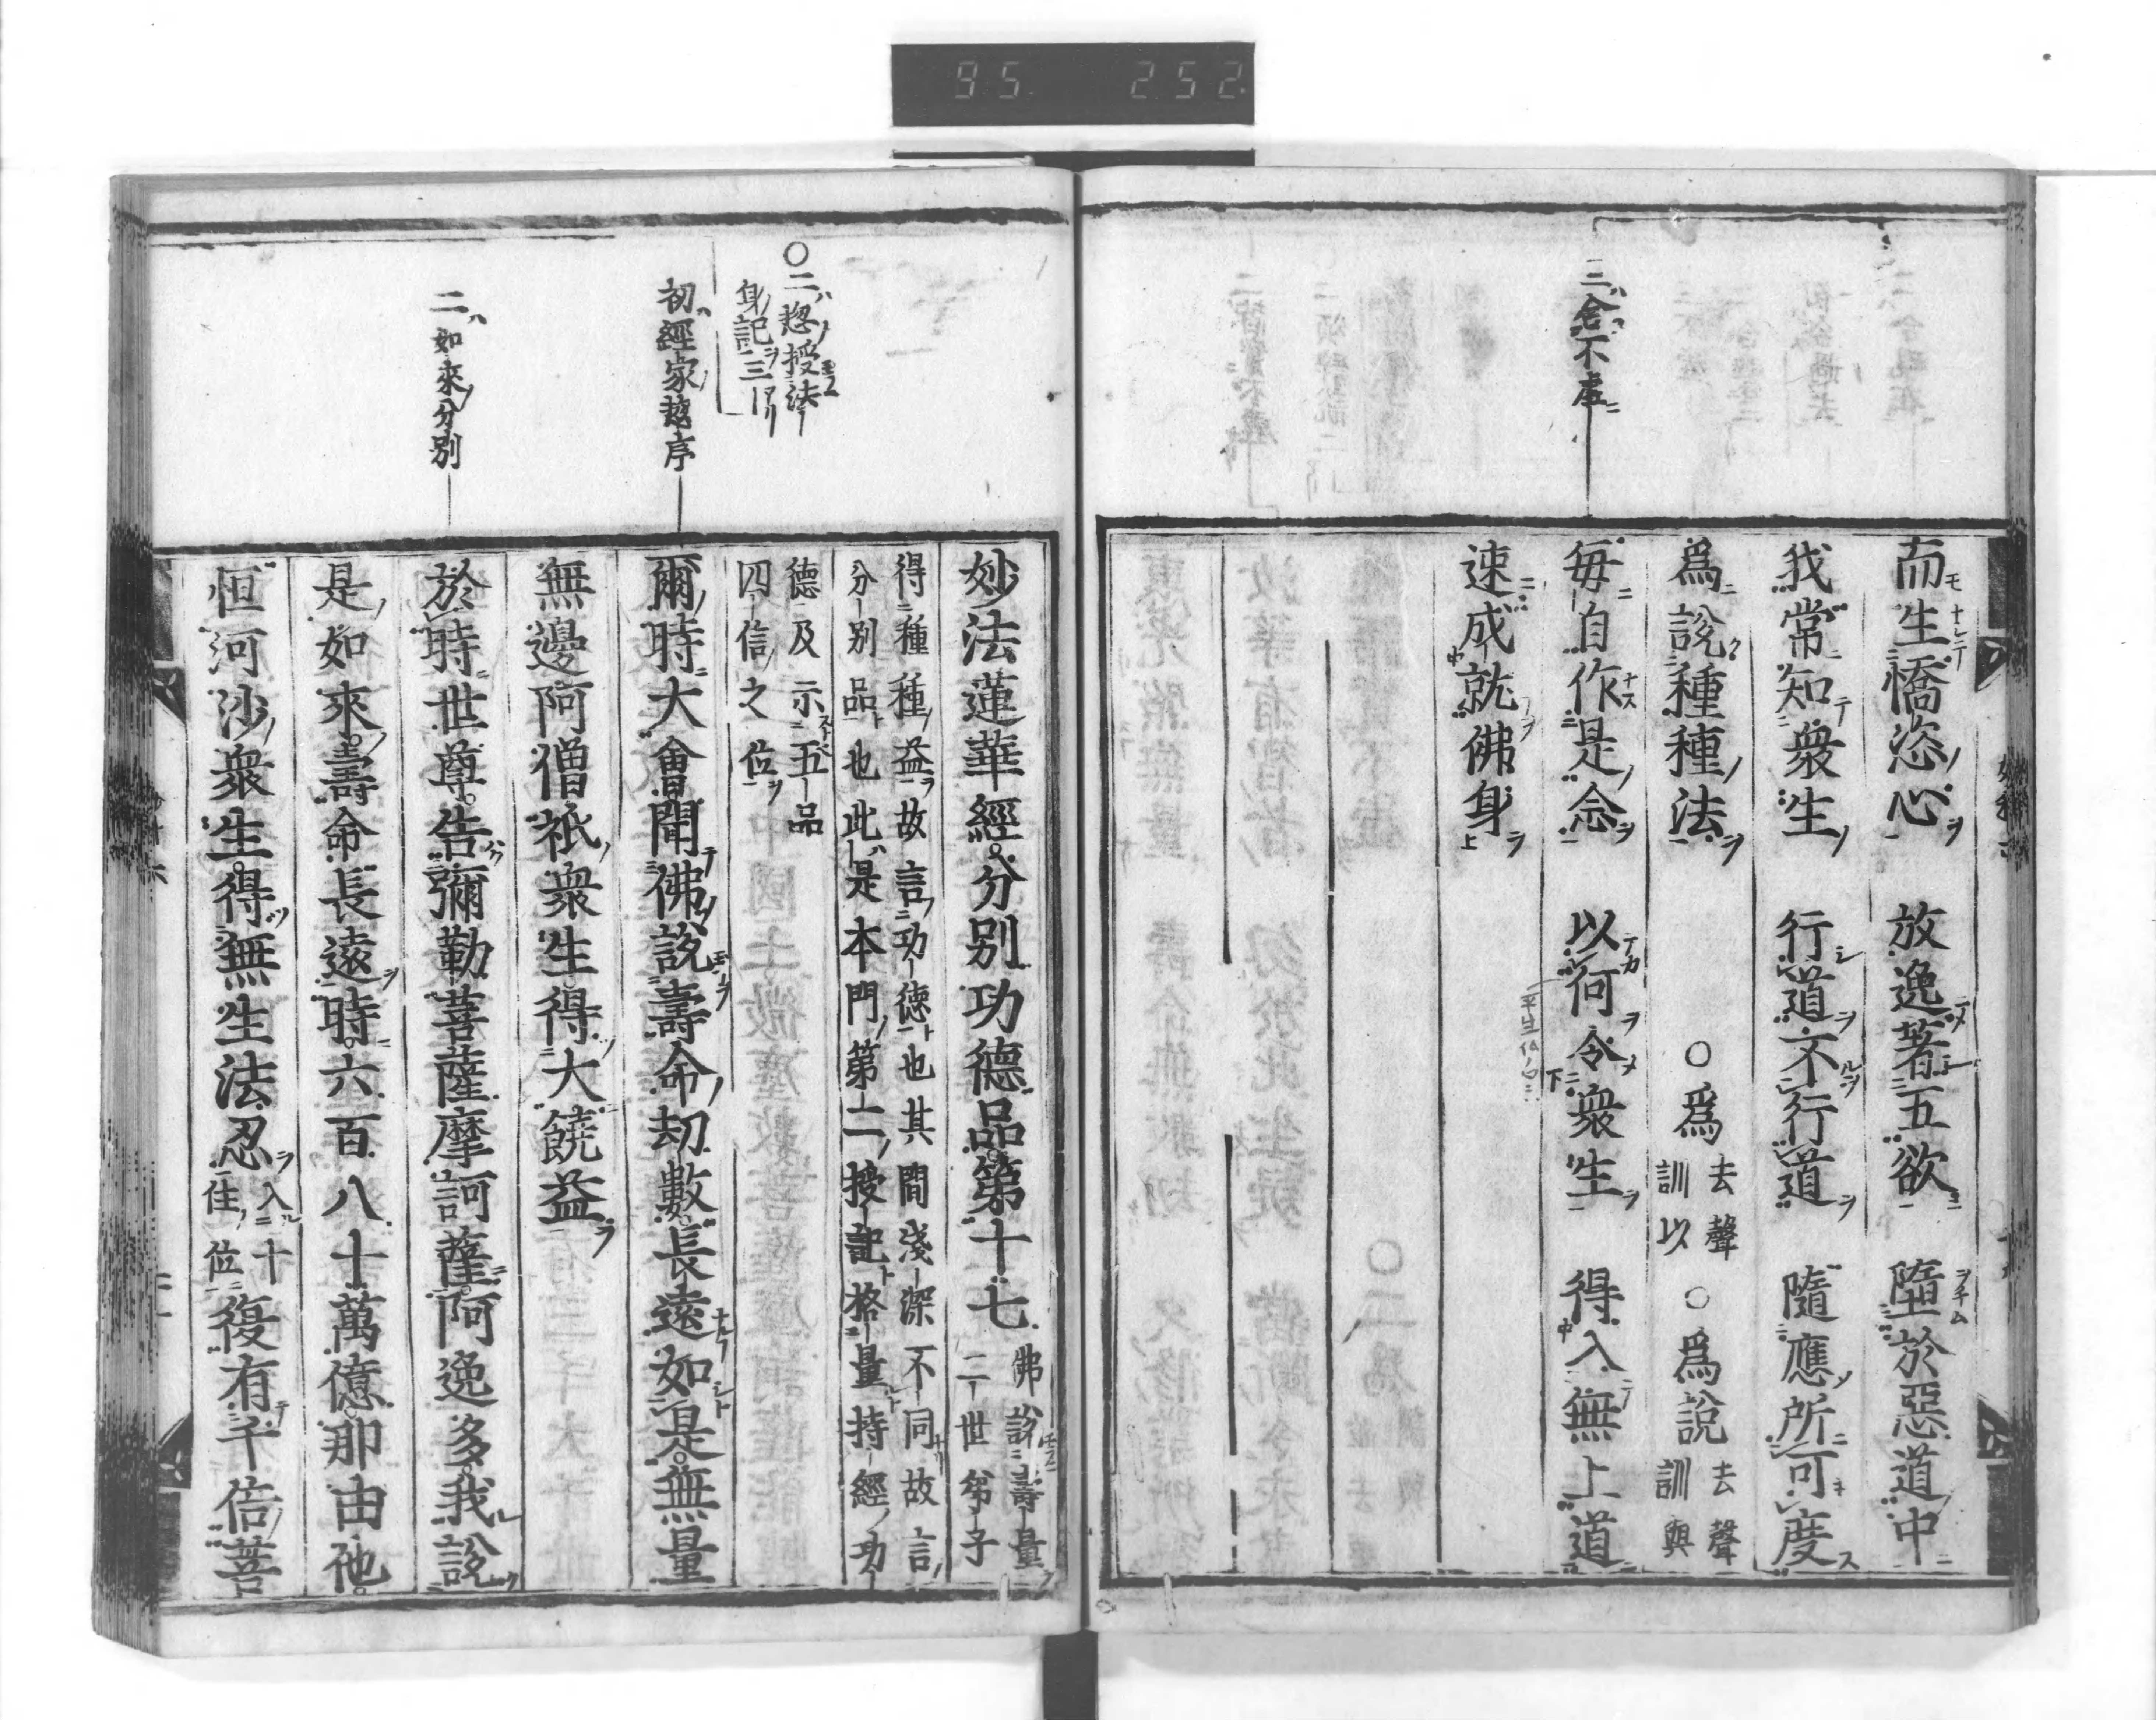 95 252
三合不虚
而生憍恣心 放逸著五欲 墮於惡道中
我常知衆生 行道不行道 隨應所可度
爲說種種法 ○爲去聲訓以 ○爲說去聲訓與
每自作是念 以何令衆生 得入無上道
速成就佛身
○二總授法
身記三
初經家敍序
二如來分別
妙法蓮華經分別功德品第十七 佛說壽量
二世弟子
得種種益故言功德也其間淺深不同故言
分別品也此是本門第二授記格量持經功
德及示五品
四信之位
爾時大會聞佛說壽命劫數長遠如是無量
無邊阿僧祇衆生得大饒益
於時世尊告彌勒菩薩摩訶薩阿逸多我說
是如來壽命長遠時六百八十萬億那由他
恒河沙衆生得無生法忍 入十住位 復有千倍菩